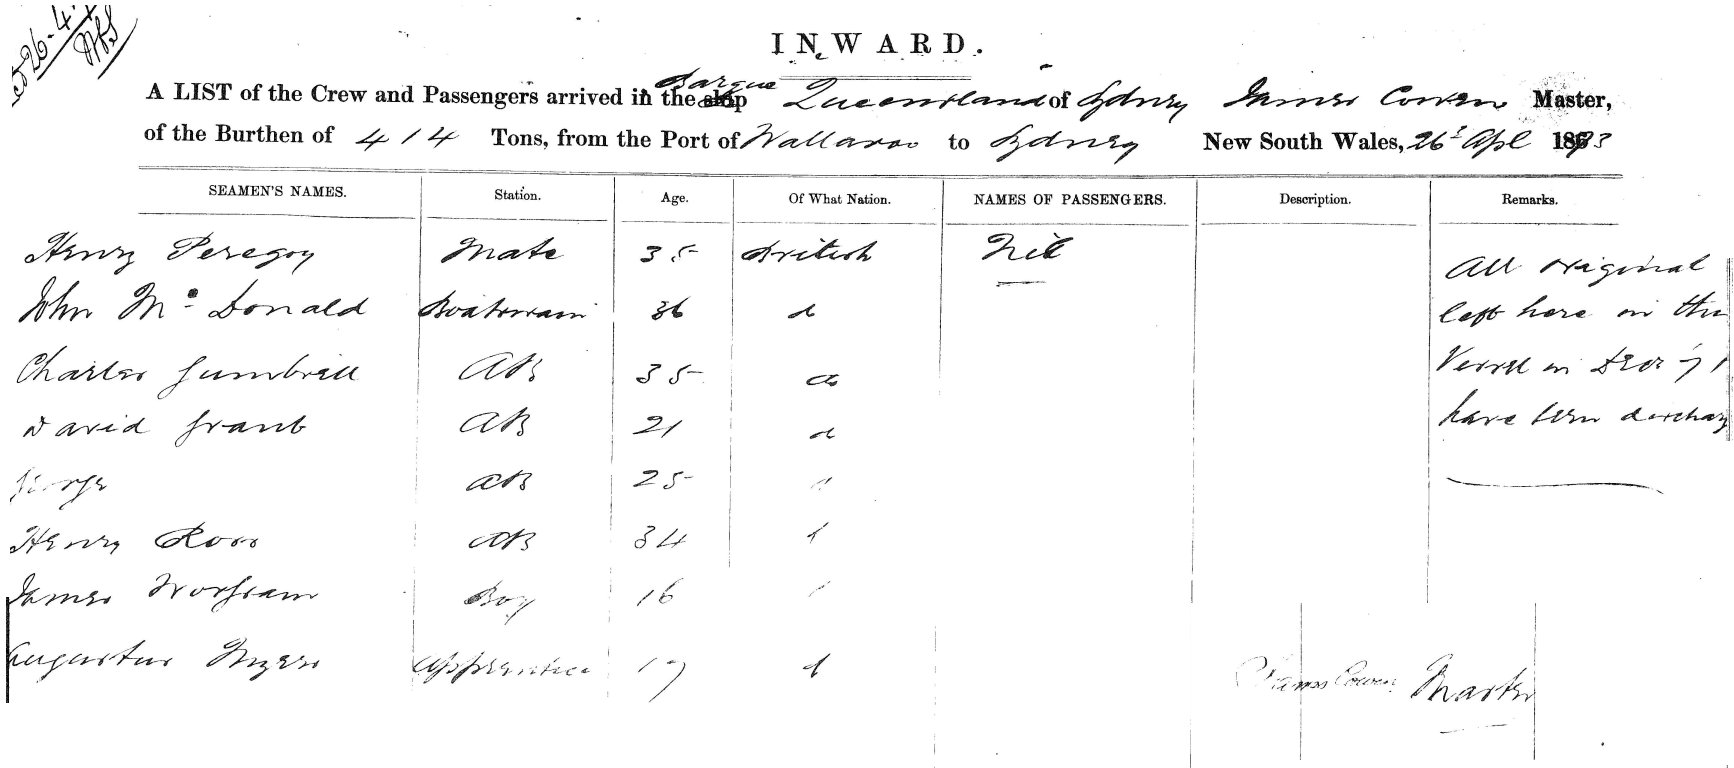 526-4
INWARD.
Barque
A LIST of the Crew and Passengers arrived in the ship Queensland of Sydney James Cowen Master,
of the Burthen of 414 Tons, from the Port of Wallaroo to Sydney New South Wales, 26 Apl 1873
SEAMEN'S NAMES. Station. Age. Of What Nation. NAMES OF PASSENGERS. Description. Remarks.
Henry Peregoy Mate 35 British Nil All original
John Mc Donald Boatswain 36 d left here in this
Charles Gumbrell AB 35 do Vessel in Decr 71
David Grant AB 21 d have been discharg
George AB 25
Henry Ross AB 34 d
James Worsfram Boy 16
Augustus Myers Apprentice 17 d
James Cowen Master